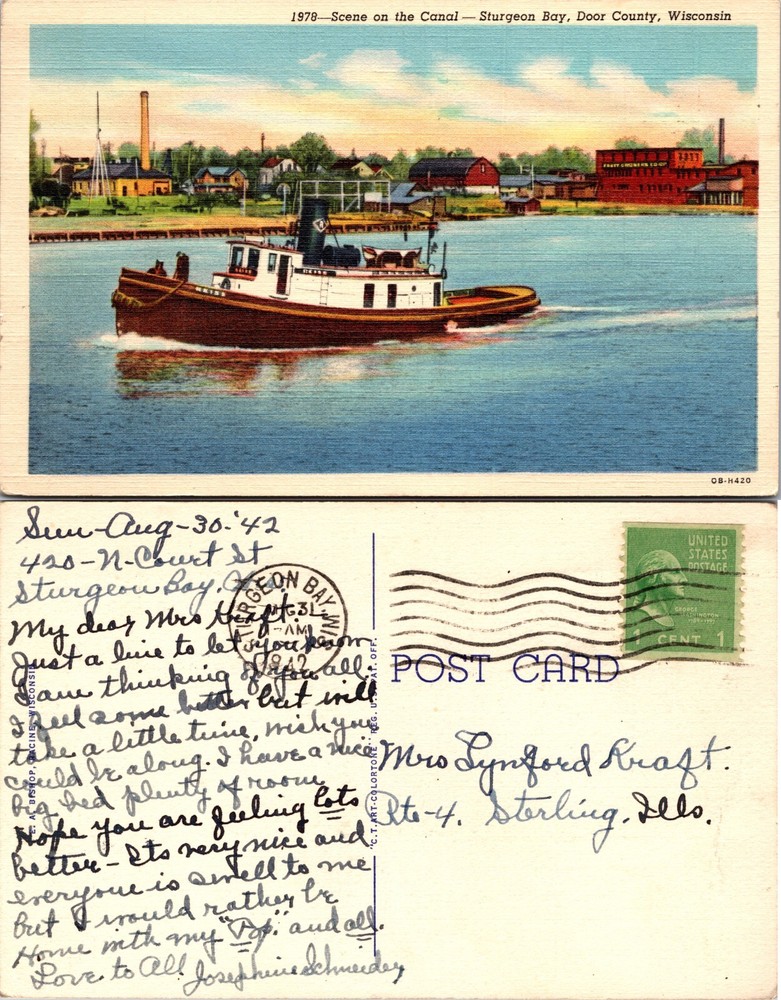 1978—Scene on the Canal — Sturgeon Bay, Door County, Wisconsin
FRUIT GROWERS CO-OP
REISS
REISS
REISS
OB-H420
Sun-Aug-30-'42
420-N-Court St
Sturgeon Bay,
My dear Mrs Kraft.
Just a line to let you know
I am thinking of you all.
I feel some better but will
take a little time, wish you
could be along. I have a nice
big bed plenty of room
Hope you are feeling lots
better-Its very nice and
everyone is swell to me
but I would rather be
Home with my "Pop." and all.
Love to All Josephine Schneider
STURGEON BAY, WIS.
AUG 31
AM
1942
E. A. BISHOP, RACINE, WISCONSIN
"C.T. ART-COLORTONE" REG. U.S. PAT. OFF.
POST CARD
UNITED
STATES
POSTAGE
GEORGE
WASHINGTON
1789-1797
1 CENT 1
Mrs Lynford Kraft.
Rte-4. Sterling, Ills.